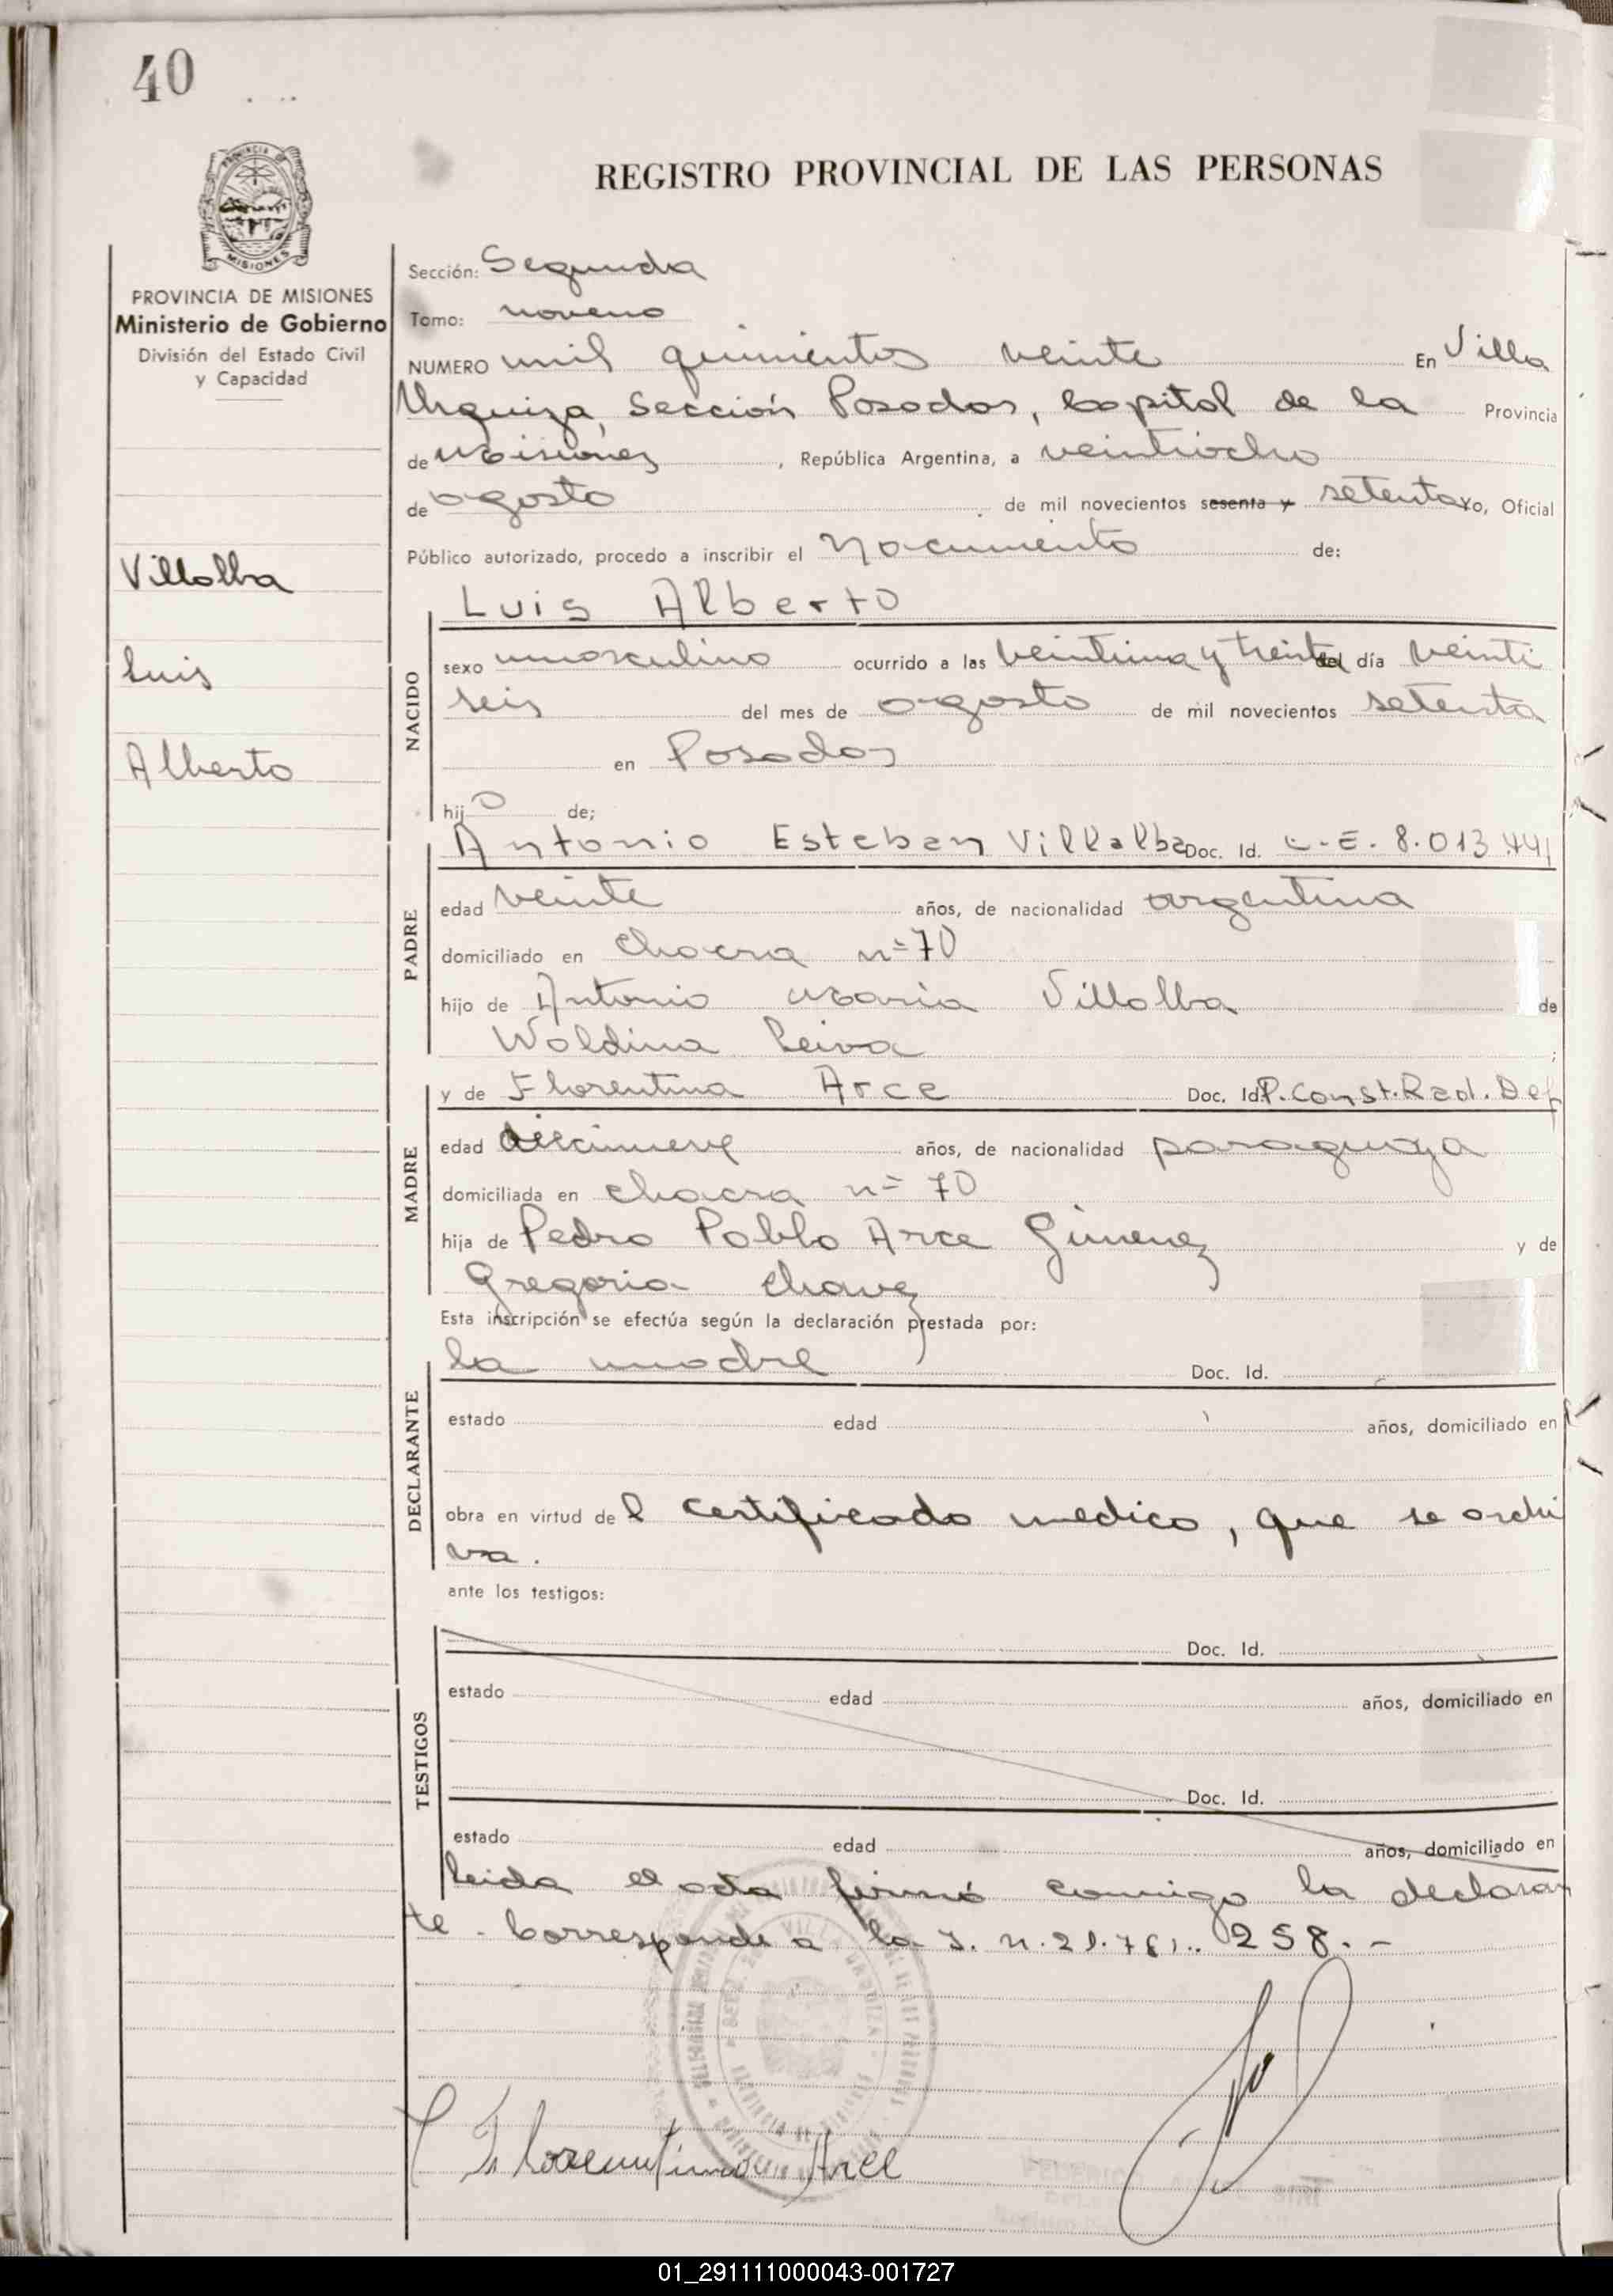 40
REGISTRO PROVINCIAL DE LAS PERSONAS
PROVINCIA DE MISIONES
Ministerio de Gobierno
División del Estado Civil
y Capacidad
Villalba
Luis
Alberto
Sección: Segunda
Tomo: noveno
NUMERO mil quinientos veinte En Villa
Urquiza, Sección Posadas, Capital de la Provincia
de Misiones, República Argentina, a veintiocho
de agosto de mil novecientos sesenta y setenta Yo, Oficial
Público autorizado, procedo a inscribir el Nacimiento de:
Luis Alberto
NACIDO
sexo masculino ocurrido a las veintiuna y treinta del día veinti
seis del mes de agosto de mil novecientos setenta
en Posadas
hijo de;
Antonio Esteban Villalba Doc. Id. L.E. 8.013.441
PADRE
edad veinte años, de nacionalidad argentina
domiciliado en chacra nº 70
hijo de Antonio María Villalba de
Waldina Leiva ;
y de Florentina Arce Doc. Id. P. Const. Rad. Def
MADRE
edad diecinueve años, de nacionalidad paraguaya
domiciliada en chacra nº 70
hija de Pedro Pablo Arce Gimenez y de
Gregoria Chavez
Esta inscripción se efectúa según la declaración prestada por:
la madre Doc. Id.
DECLARANTE
estado edad años, domiciliado en
obra en virtud del certificado medico, que se archi
va.
ante los testigos:
Doc. Id.
TESTIGOS
estado edad años, domiciliado en
Doc. Id.
estado edad años, domiciliado en
leida el acta firmó comigo la declaran
te. Corresponde a la I. n. 21.761.. 258.-
Florentina Arce
01_291111000043-001727